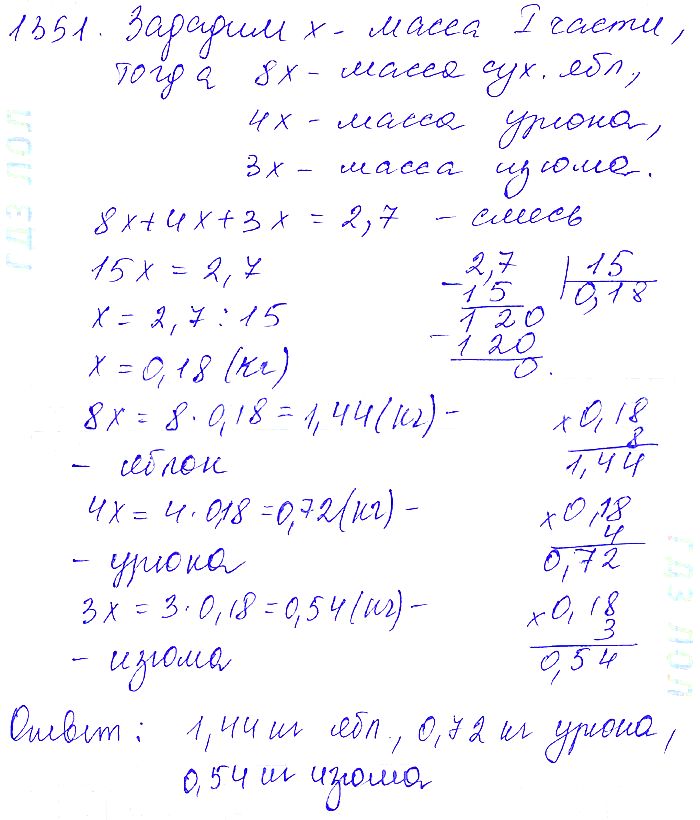 1351. Зададим x - масса I части,
тогда 8x - масса сух. ябл,
4x - масса урюка,
3x - масса изюма.
8x+4x+3x = 2,7 - смесь
15x = 2,7
x = 2,7 : 15
x = 0,18 (кг)
2,7 | 15
- 15 0,18
120
- 120
0.
8x = 8 · 0,18 = 1,44 (кг) -
- яблок
x 0,18
8
1,44
4x = 4 · 0,18 = 0,72 (кг) -
- урюка
x 0,18
4
0,72
3x = 3 · 0,18 = 0,54 (кг) -
- изюма
x 0,18
3
0,54
Ответ: 1,44 кг ябл., 0,72 кг урюка,
0,54 кг изюма